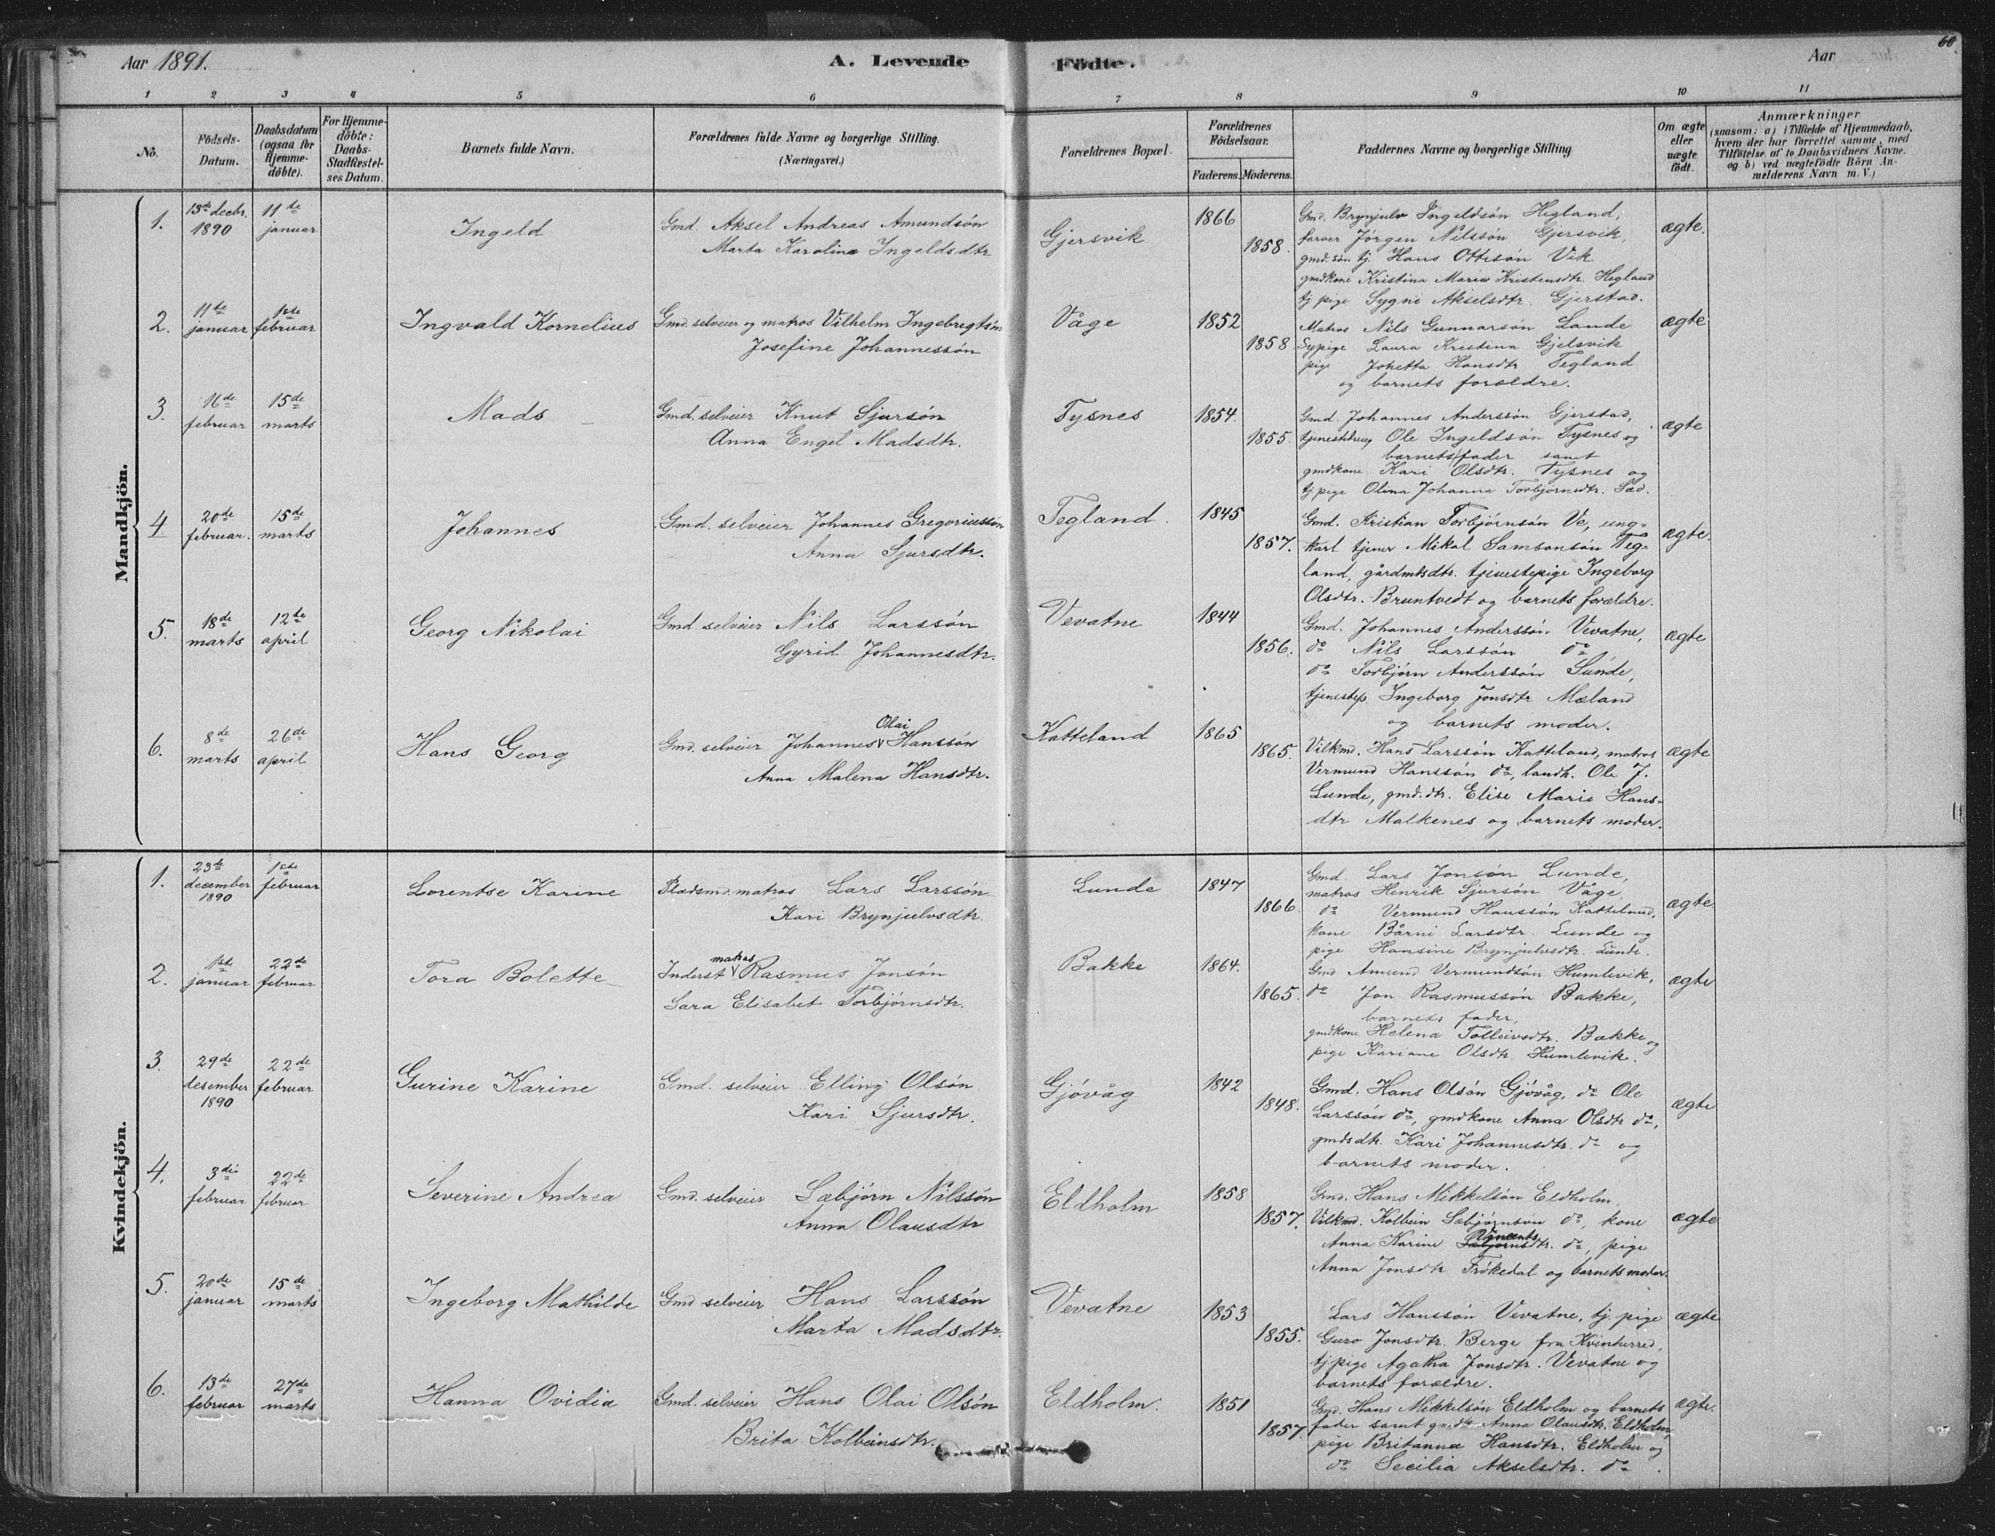 Aar 1891.
A. Levende Födte.
Aar
60
1 2 3 4 5 6 7 8 9 10 11
No.
Födsels-
Datum.
Daabsdatum
(ogsaa for
Hjemme-
döbte).
For Hjemme-
döbte:
Daabs-
Stadfæstel-
ses Datum.
Barnets fulde Navn.
Forældrenes fulde Navne og borgerlige Stilling.
(Næringsvei.)
Forældrenes Bopæl.
Forældrenes
Födselsaar.
Faderens. Moderens.
Faddernes Navne og borgerlige Stilling
Om ægte
eller
uægte
födt.
Anmærkninger
(saasom: a) i Tilfælde af Hjemmedaab,
hvem der har forrettet samme, med
Tilföielse af to Daabsvidners Navne.
og b) ved uægtefödte Börn An-
melderens Navn m. V.)
Mandkjön.
1.
13de decbr.
1890
11de
januar
Ingeld
Gmd. Aksel Andreas Amundsön
Marta Karolina Ingeldsdtr
Gjersvik
1866
1858.
Gmd. Brynjulv Ingeldsön Hegland,
farver Jörgen Nilssön Gjersvik,
gmd.sön tj. Hans Ottesön Vik
gmdkone Kristina Marie Kristensdtr. Hegland
tj pige Sygni Akselsdtr. Gjerstad.
ægte.
2.
11te
januar
1ste
februar
Ingvald Kornelius
Gmd. selveier og matros Vilhelm Ingebregtsön
Josefine Johannessön
Våge
1852
1858
Matros Nils Gunnarsön Lande
Sypige Laura Kristina Gjelsvik
pige Johetta Hansdtr Tegland
og barnets forældre.
ægte
3.
16de
februar
15de
marts
Mads
Gmd. selveier Knut Sjursön
Anna Engel Madsdtr.
Tysnes
1854.
1855.
Gmd. Johannes Anderssön Gjerstad,
tjenestdreng Ole Ingeldsön Tysnes og
barnets fader samt
gmdkone Kari Olsdtr. Tysnes og
tj. pige Olina Johanna Torbjörnsdtr. Sæd.
ægte
4
20de
februar.
15de
marts
Johannes
Gmd. selveier Johannes Gregoriussön
Anna Sjursdtr.
Tegland.
1845
1857.
Gmd. Kristian Torbjörnsön Ve, ung-
karl tjener Mikal Samsonsön Teg-
land, gårdmdsdtr. tjenestepige Ingeborg
Olsdtr. Bruntvedt og barnets forældre.
ægte.
5.
18de
marts
12te
april
Georg Nikolai
Gmd selveier Nils Larssön
Gyrid Johannesdtr.
Vevatne
1844
1856.
Gmd. Johannes Anderssön Vevatne,
do Nils Larssön do
do Torbjörn Anderssön Sunde,
tjenestep. Ingeborg Jonsdtr Mæland
og barnets moder.
ægte
6.
8de
marts
26de
april
Hans Georg
Gmd. selveier Johannes Olai Hanssön
Anna Malena Hansdtr.
Katteland
1865
1865.
Vilkmd. Hans Larssön Katteland, matros
Vermund Hanssön do, landh. Ole J.
Lunde, gmd.dtr. Elise Marie Hans-
dtr Malkenes og barnets moder.
ægte
Kvindekjön.
1.
23de
december
1890
1ste
februar
Lorentse Karine
Pladsmd. matros Lars Larssön
Kari Brynjulvsdtr.
Lunde
1847
1866
Gmd. Lars Jonsön Lunde,
matros Henrik Sjursön Våge,
do Vermund Hanssön Katteland,
kone Bårni Larsdtr. Lunde og
pige Hansine Brynjulvsdtr. Lunde.
ægte.
2.
1ste
januar
22de
februar
Tora Bolette
Inderst matros Rasmus Jonsön
Sara Elisabet Torbjörnsdtr.
Bakke
1864.
1865.
Gmd Amund Vermundsön Humlevik,
do Jon Rasmussön Bakke,
barnets fader,
gmdkone Helena Tollevsdtr. Bakke og
pige Kariane Olsdtr. Humlevik.
ægte
3.
29de
desember
1890
22de
februar
Gurine Karine
Gmd. selveier Elling Olsön
Kari Sjursdtr.
Gjövåg
1842
1848.
Gmd. Hans Olsön Gjövåg, do Ole
Larssön do, gmdkone Anna Olsdtr do,
gmdsdtr. Kari Johannesdtr. do og
barnets moder.
ægte
4.
3die
februar
22de
februar
Severine Andrea
Gmd. selveier Sæbjörn Nilssön
Anna Olausdtr
Eldholm
1858
1857.
Gmd. Hans Mikkelsön Eldholm
Vilkmd. Kolbein Sæbjörnsön do, kone
Anna Karine Sæbjörnsdtr. do, pige
Anna Jonsdtr Trökedal og barnets moder.
ægte
5.
20de
januar
15de
marts
Ingeborg Mathilde
Gmd selveier Hans Larssön
Marta Madsdtr.
Vevatne
1853
1855.
Lars Hanssön Vevatne, tj. pige
Guro Jonsdtr. Berge fra Kvinherred,
tj pige Agatha Jonsdtr. Vevatne og
barnets forældre.
ægte
6.
13de
februar
27de
marts
Hanna Ovidia
Gmd. selveier Hans Olai Olsön
Brita Kolbeinsdtr.
Eldholm.
1851
1857.
Gmd. Hans Mikkelsön Eldholm og barnets
fader samt Anna Olausdtr. Eldholm
pige Britanna Hansdtr. Eldholm og
do Secilia Akselsdtr. do
ægte.